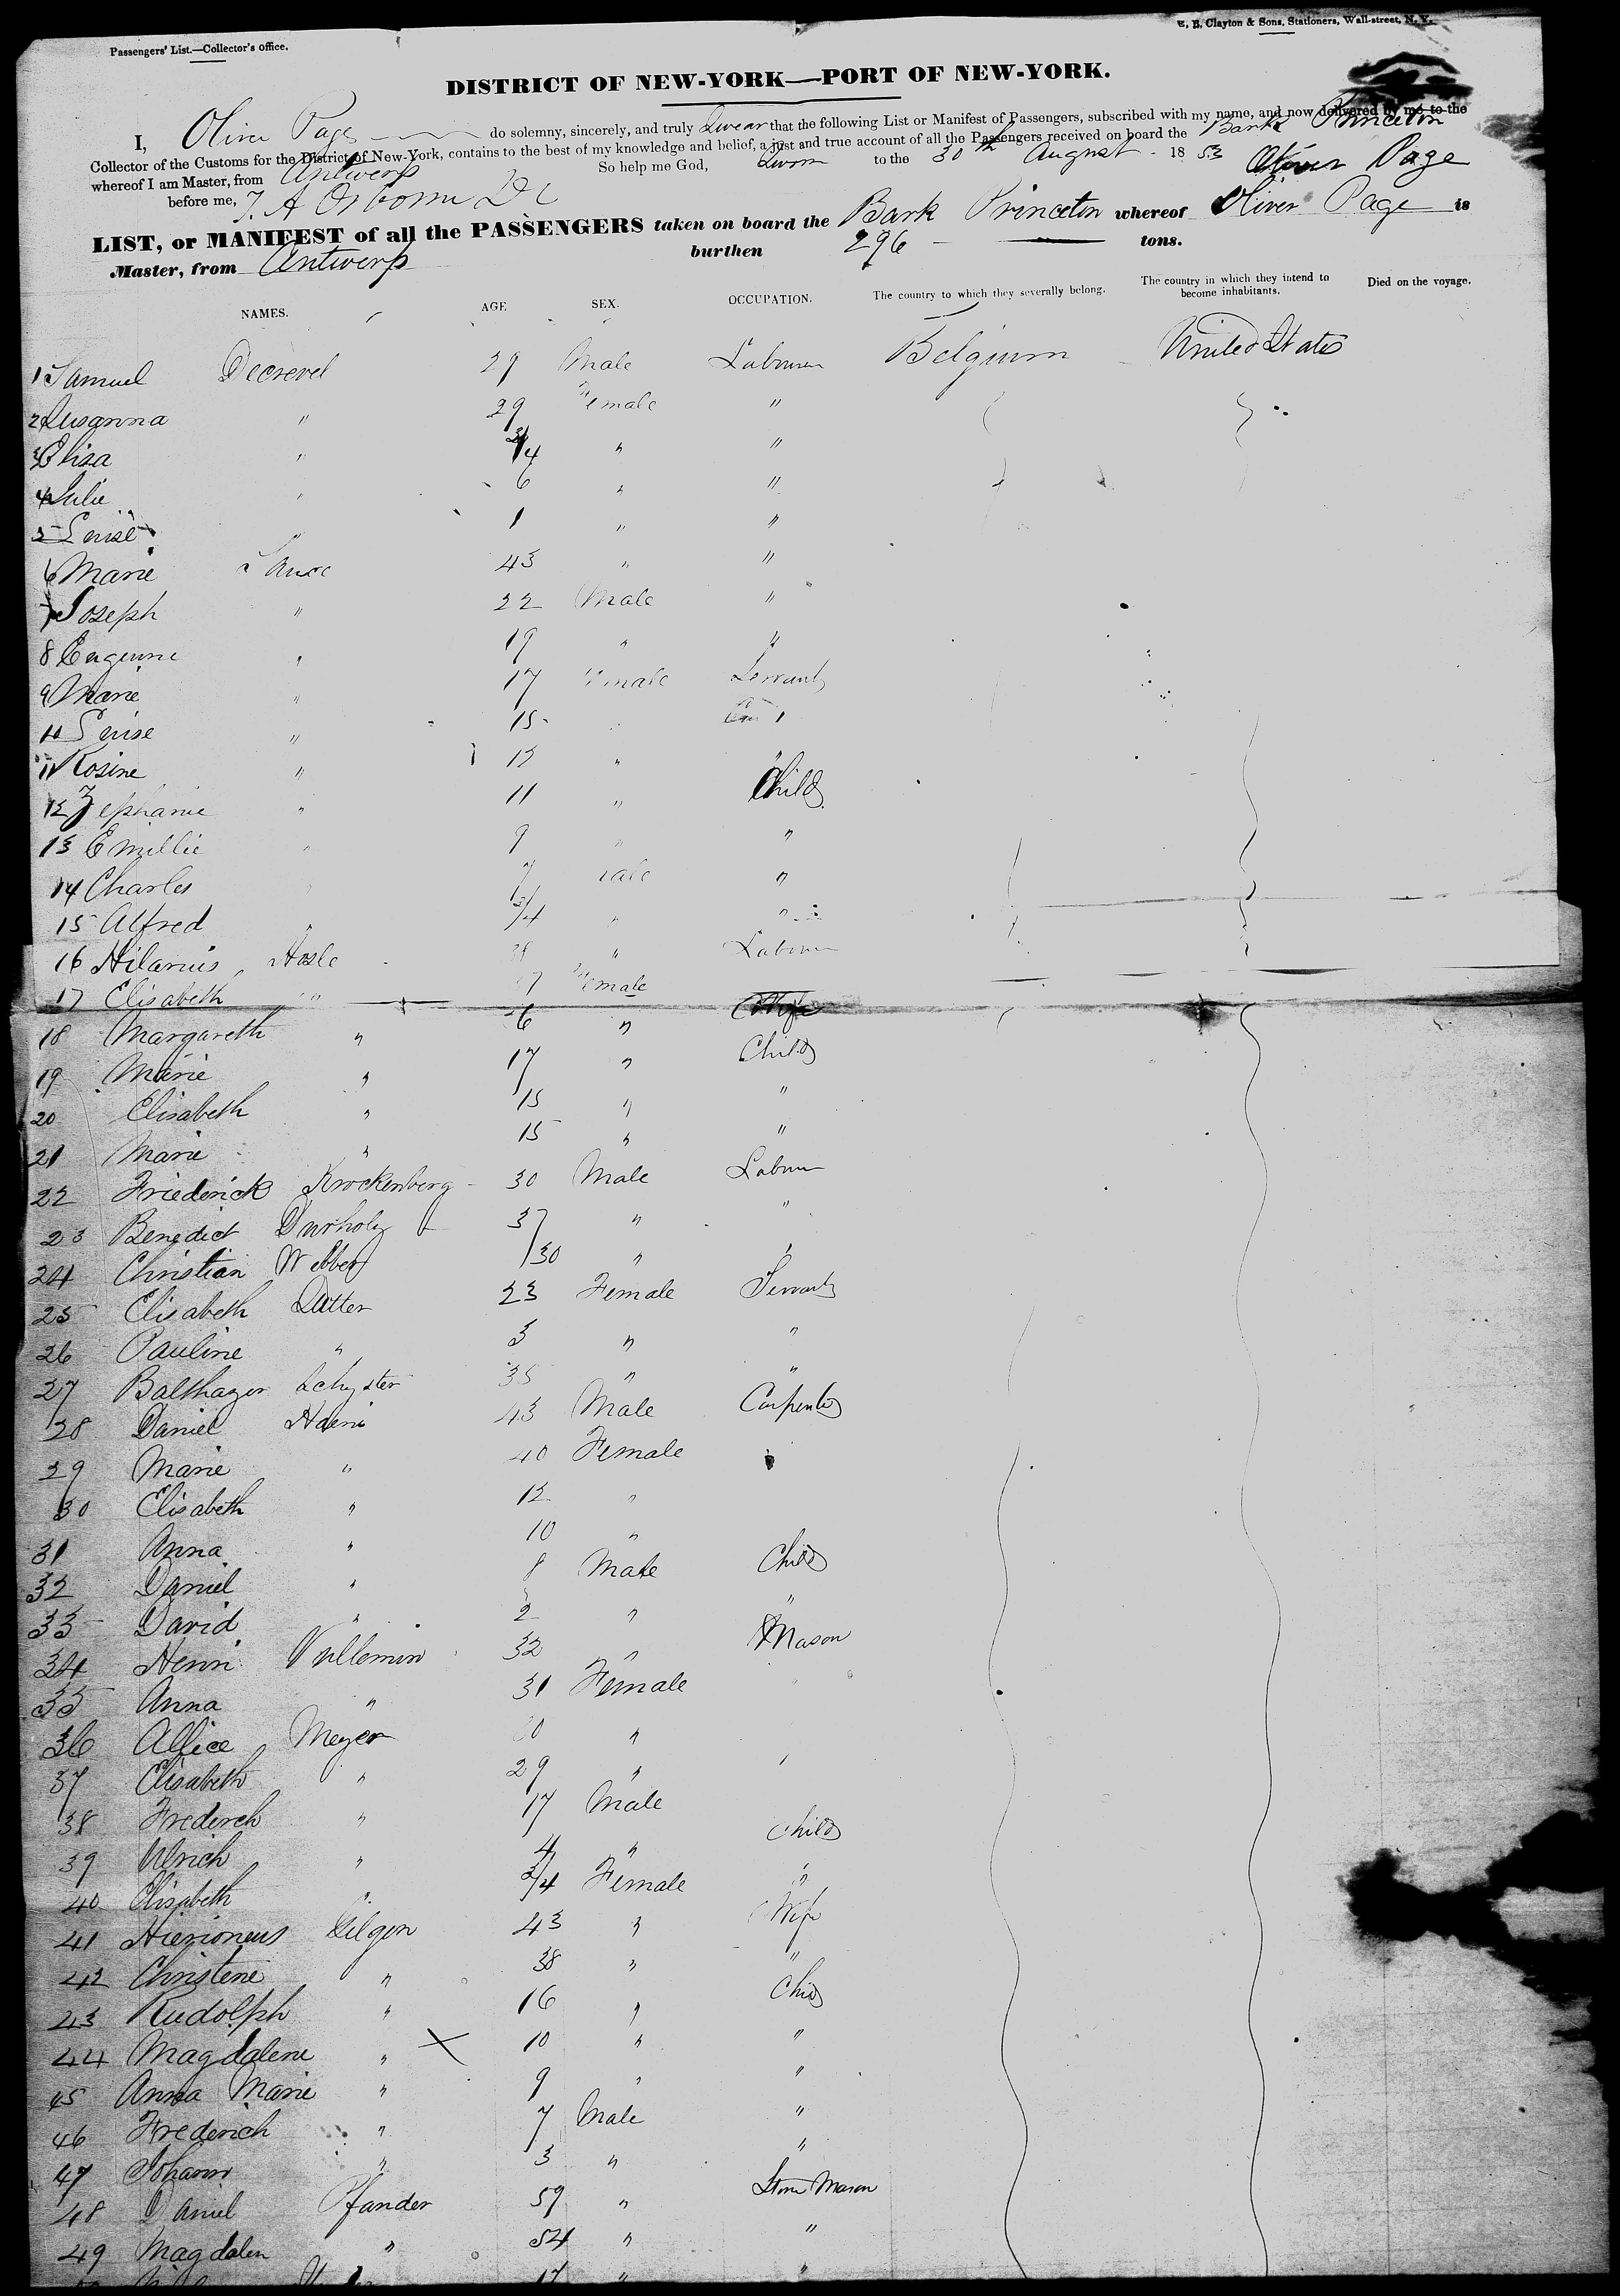 Passengers' List.—Collector's office.
E. B. Clayton & Sons, Stationers, Wall-street, N. Y.
DISTRICT OF NEW-YORK—PORT OF NEW-YORK.
I, Oliver Page do solemny, sincerely, and truly Swear that the following List or Manifest of Passengers, subscribed with my name, and now delivered by me to the
Collector of the Customs for the District of New-York, contains to the best of my knowledge and belief, a just and true account of all the Passengers received on board the Bark Princeton
whereof I am Master, from Antwerp So help me God, Sworn to the 30th August 1853 Oliver Page
before me, T. A Osborne
LIST, or MANIFEST of all the PASSENGERS taken on board the Bark Princeton whereof Oliver Page is
Master, from Antwerp burthen 296 tons.
NAMES. AGE SEX. OCCUPATION. The country to which they severally belong. The country in which they intend to become inhabitants. Died on the voyage.
1 Samuel Decrevel 29 Male Labourer Belgium United States
2 Susanna " 29 Female "
3 Elisa " 3/4 " "
4 Julie " 6 " "
5 Louise " 1 " "
6 Marie 43 " "
7 Joseph " 22 Male "
8 " 19 " "
9 Marie " 17 Female Servant
10 Louise " 15
11 Rosine " 13 " "
12 Zephanie " 11 " Child
13 Emillie " 9 " "
14 Charles " 7 Male "
15 Alfred " 3/4 " "
16 Hilarius Hosle " Labourer
17 Elisabeth " Female
18 Margareth " 6 " Wife
19 Marie " 17 " Child
20 Elisabeth " 15 " "
21 Marie " 15 " "
22 Friederick Krockenberg 30 Male Labour
23 Benedict Durholz 37 " "
24 Christian Webber 30 " "
25 Elisabeth Datter 23 Female Servant
26 Pauline " 3 " "
27 Balthazer Schyster 35 " "
28 Daniel Haeni 43 Male Carpenter
29 Marie " 40 Female "
30 Elisabeth " 12 "
31 Anna " 10 "
32 Daniel " 8 Male Child
33 David " 2 " "
34 Henri Vullemin 32 " Mason
35 Anna " 31 Female
36 Allice Meyer "
37 Elisabeth " 29 "
38 Frederch " 17 Male
39 Ulrich " 4 " Child
40 Elisabeth " 3/4 Female "
41 Hieroneus Gilgen 43 " Wife
42 Christene " 38 " "
43 Rudolph " 16 " Child
44 Magdalene " 10 " "
45 Anna Marie " 9 " "
46 Frederich " 7 Male "
47 Johann " 3 " "
48 Daniel Pfander 59 " Stone Mason
49 Magdalen " 54 " "
17 " "